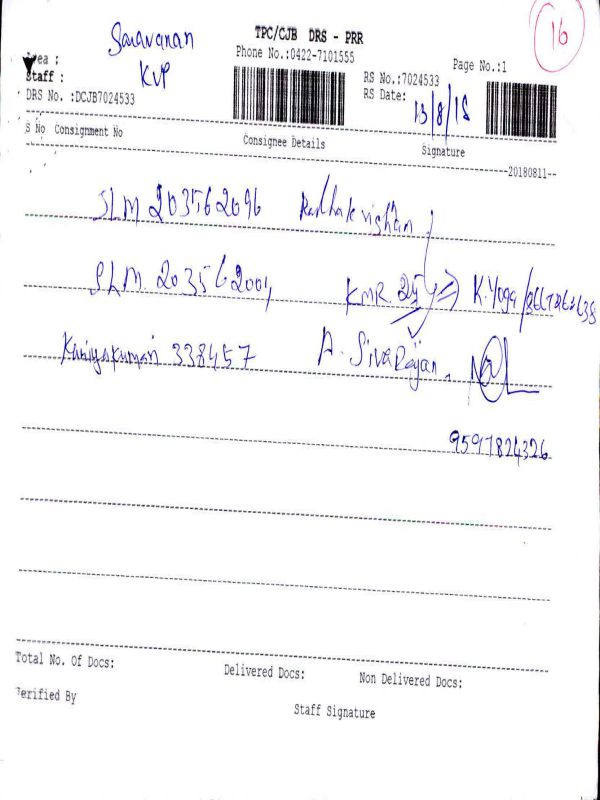 Saravanan TPC/CJB DRS - PRR 16
Area : Phone No.:0422-7101555 Page No.:1
Staff : KVP RS No.:7024533
DRS No. :DCJB7024533 RS Date: 13/8/18
S No Consignment No Consignee Details Signature
20180811--
SLM 203562096 Radhakrishnan
SLM. 203562004 KMR. 25 K. Yoga
Kaniyakumari 338457 A. Siva Rajan.
9597824326
Total No. Of Docs: Delivered Docs: Non Delivered Docs:
Verified By Staff Signature